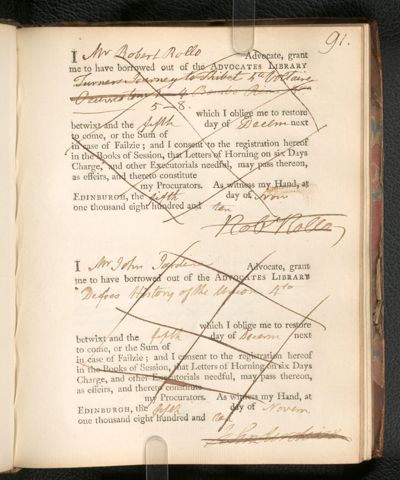 91.
I Mr Robert Rollo Advocate, grant
me to have borrowed out of the ADVOCATES LIBRARY
Turners Journey to Thibet 4to Voltaire
5 - 8.
which I oblige me to restore
betwixt and the fifth day of Decem next
to come, or the Sum of
in case of Failzie; and I consent to the registration hereof
in the Books of Session, that Letters of Horning on six Days
Charge, and other Executorials needful, may pass thereon,
as effeirs, and thereto constitute
my Procurators. As witness my Hand, at
EDINBURGH, the fifth day of Novm
one thousand eight hundred and ten
Robt Rollo
I Mr John Advocate, grant
me to have borrowed out of the ADVOCATES LIBRARY
Defoes History of the Union 4to
which I oblige me to restore
betwixt and the fifth day of Decem next
to come, or the Sum of
in case of Failzie; and I consent to the registration hereof
in the Books of Session, that Letters of Horning on six Days
Charge, and other Executorials needful, may pass thereon,
as effeirs, and thereto constitute
my Procurators. As witness my Hand, at
EDINBURGH, the fifth day of Novem
one thousand eight hundred and ten